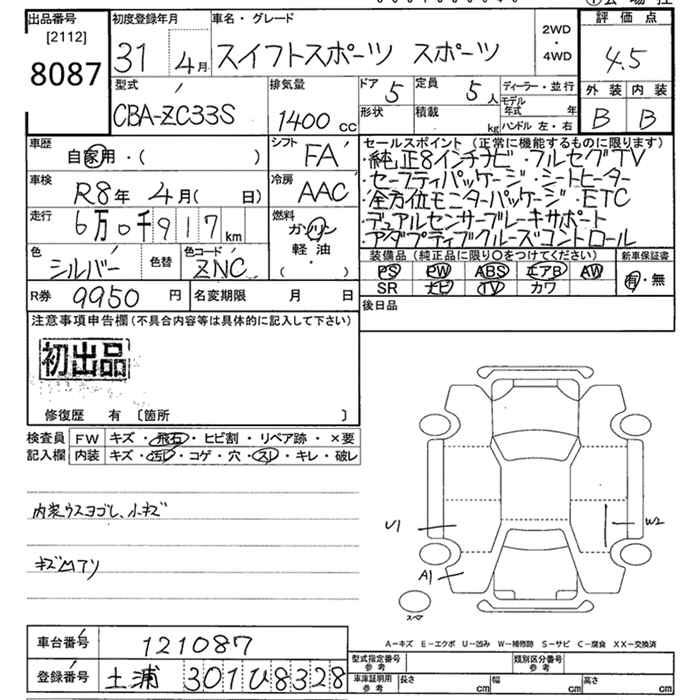 出品番号 初度登録年月 車名・グレード 評価点
[2112]
8087 31年 4月 スイフトスポーツ スポーツ 2WD・4WD 4.5
型式 排気量 ドア 5 定員 5人 ディーラー・並行 外装 内装
CBA-ZC33S 1400cc 形状 積載 kg モデル年式 年 B B
ハンドル 左・右
車歴 自家用・( ) シフト FA セールスポイント(正常に機能するものに限ります)
・純正8インチナビ・フルセグTV
車検 R8年 4月( 日) 冷房 AAC ・セーフティパッケージ・シートヒーター
・全方位モニターパッケージ・ETC
走行 6万0千917km 燃料 ガソリン・軽油・( ) ・デュアルセンサーブレーキサポート
・アダプティブクルーズコントロール
色 シルバー 色替 色コード ZNC 装備品(純正品に限り○をつけてください) 新車保証書
PS PW ABS エアB AW 有・無
SR ナビ TV カワ
R券 9950円 名変期限 月 日 後日品
注意事項申告欄(不具合内容等は具体的に記入して下さい)
初出品
修復歴 有 〔箇所 〕
検査員記入欄 FW キズ・飛石・ヒビ割・リペア跡・×要
内装 キズ・汚レ・コゲ・穴・スレ・キレ・破レ
内装ウスヨゴレ、小キズ
U1 W2
キズムアリ
A1
スペア
A-キズ E-エクボ U-凹み W-補修跡 S-サビ C-腐食 XX-交換済
車台番号 121087 型式指定番号 参考 類別区分番号 参考
登録番号 土浦 301 ひ 8328 車庫証明用 参考 長さ cm 幅 cm 高さ cm